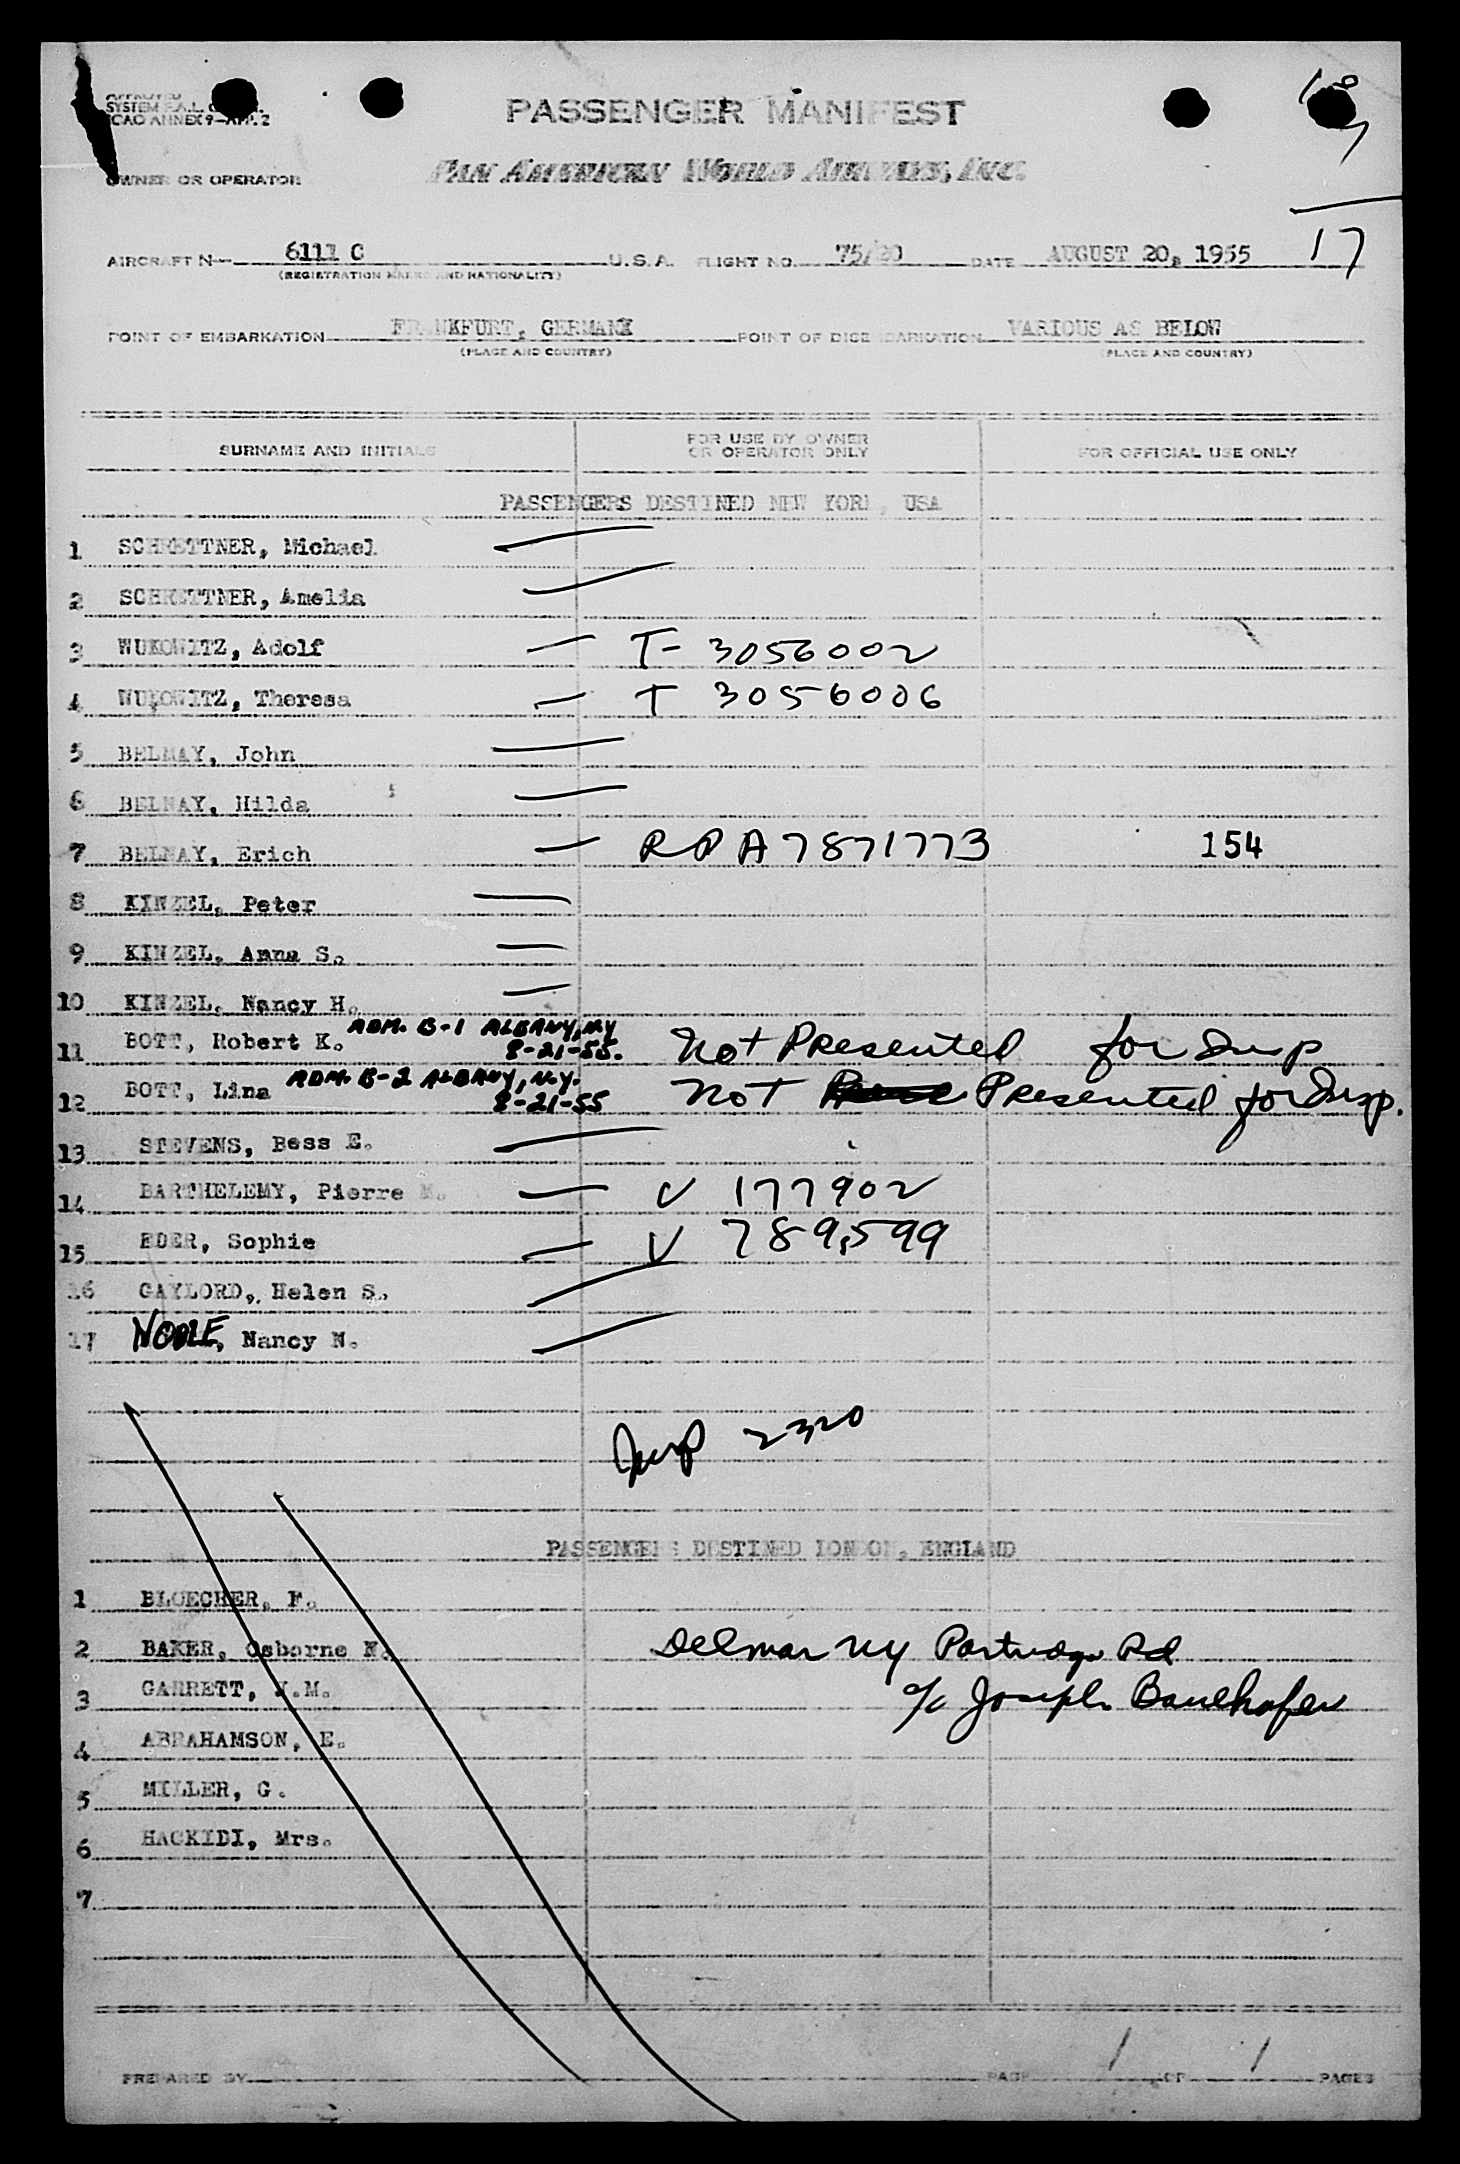 APPROVED
SYSTEM F.A.L.
ICAO ANNEX 9-APP. 2
PASSENGER MANIFEST
18
7
17
OWNER OR OPERATOR PAN AMERICAN WORLD AIRWAYS, INC.
AIRCRAFT N— 6111 C U.S.A. FLIGHT NO. 75/20 DATE AUGUST 20, 1955
(REGISTRATION MARKS AND NATIONALITY)
POINT OF EMBARKATION FRANKFURT, GERMANY POINT OF DISEMBARKATION VARIOUS AS BELOW
(PLACE AND COUNTRY) (PLACE AND COUNTRY)
SURNAME AND INITIALS FOR USE BY OWNER OR OPERATOR ONLY FOR OFFICIAL USE ONLY
PASSENGERS DESTINED NEW YORK, USA
1 SCHRETTNER, Michael
2 SCHRETTNER, Amelia
3 WUKOWITZ, Adolf — T- 3056002
4 WUKOWITZ, Theresa — T 3056006
5 BELNAY, John
6 BELNAY, Hilda
7 BELNAY, Erich — RPA7871773 154
8 KINZEL, Peter
9 KINZEL, Anna S.
10 KINZEL, Nancy H.
11 BOTT, Robert K. ADM. B-1 ALBANY, NY 8-21-55. Not Presented for Insp
12 BOTT, Lina ADM. B-2 ALBANY, N.Y. 8-21-55 Not Presented for Insp.
13 STEVENS, Bess E.
14 BARTHELEMY, Pierre M. — V 177902
15 EDER, Sophie — V 789,599
16 GAYLORD, Helen S.
17 NOBLE, Nancy N.
Insp 2320
PASSENGERS DESTINED LONDON, ENGLAND
1 BLOECHER, F.
2 BAKER, Osborne N. Delmar NY Partridge Rd
3 GARRETT, .M. c/o Joseph Bauelhofer
4 ABRAHAMSON, E.
5 MILLER, G.
6 HACKIDI, Mrs.
7
PREPARED BY PAGE 1 OF 1 PAGES